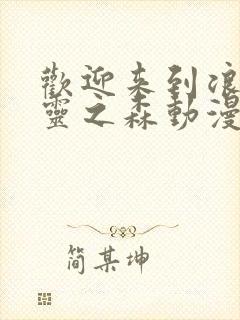 歡迎来到浪
靈之森動漫
简某坤